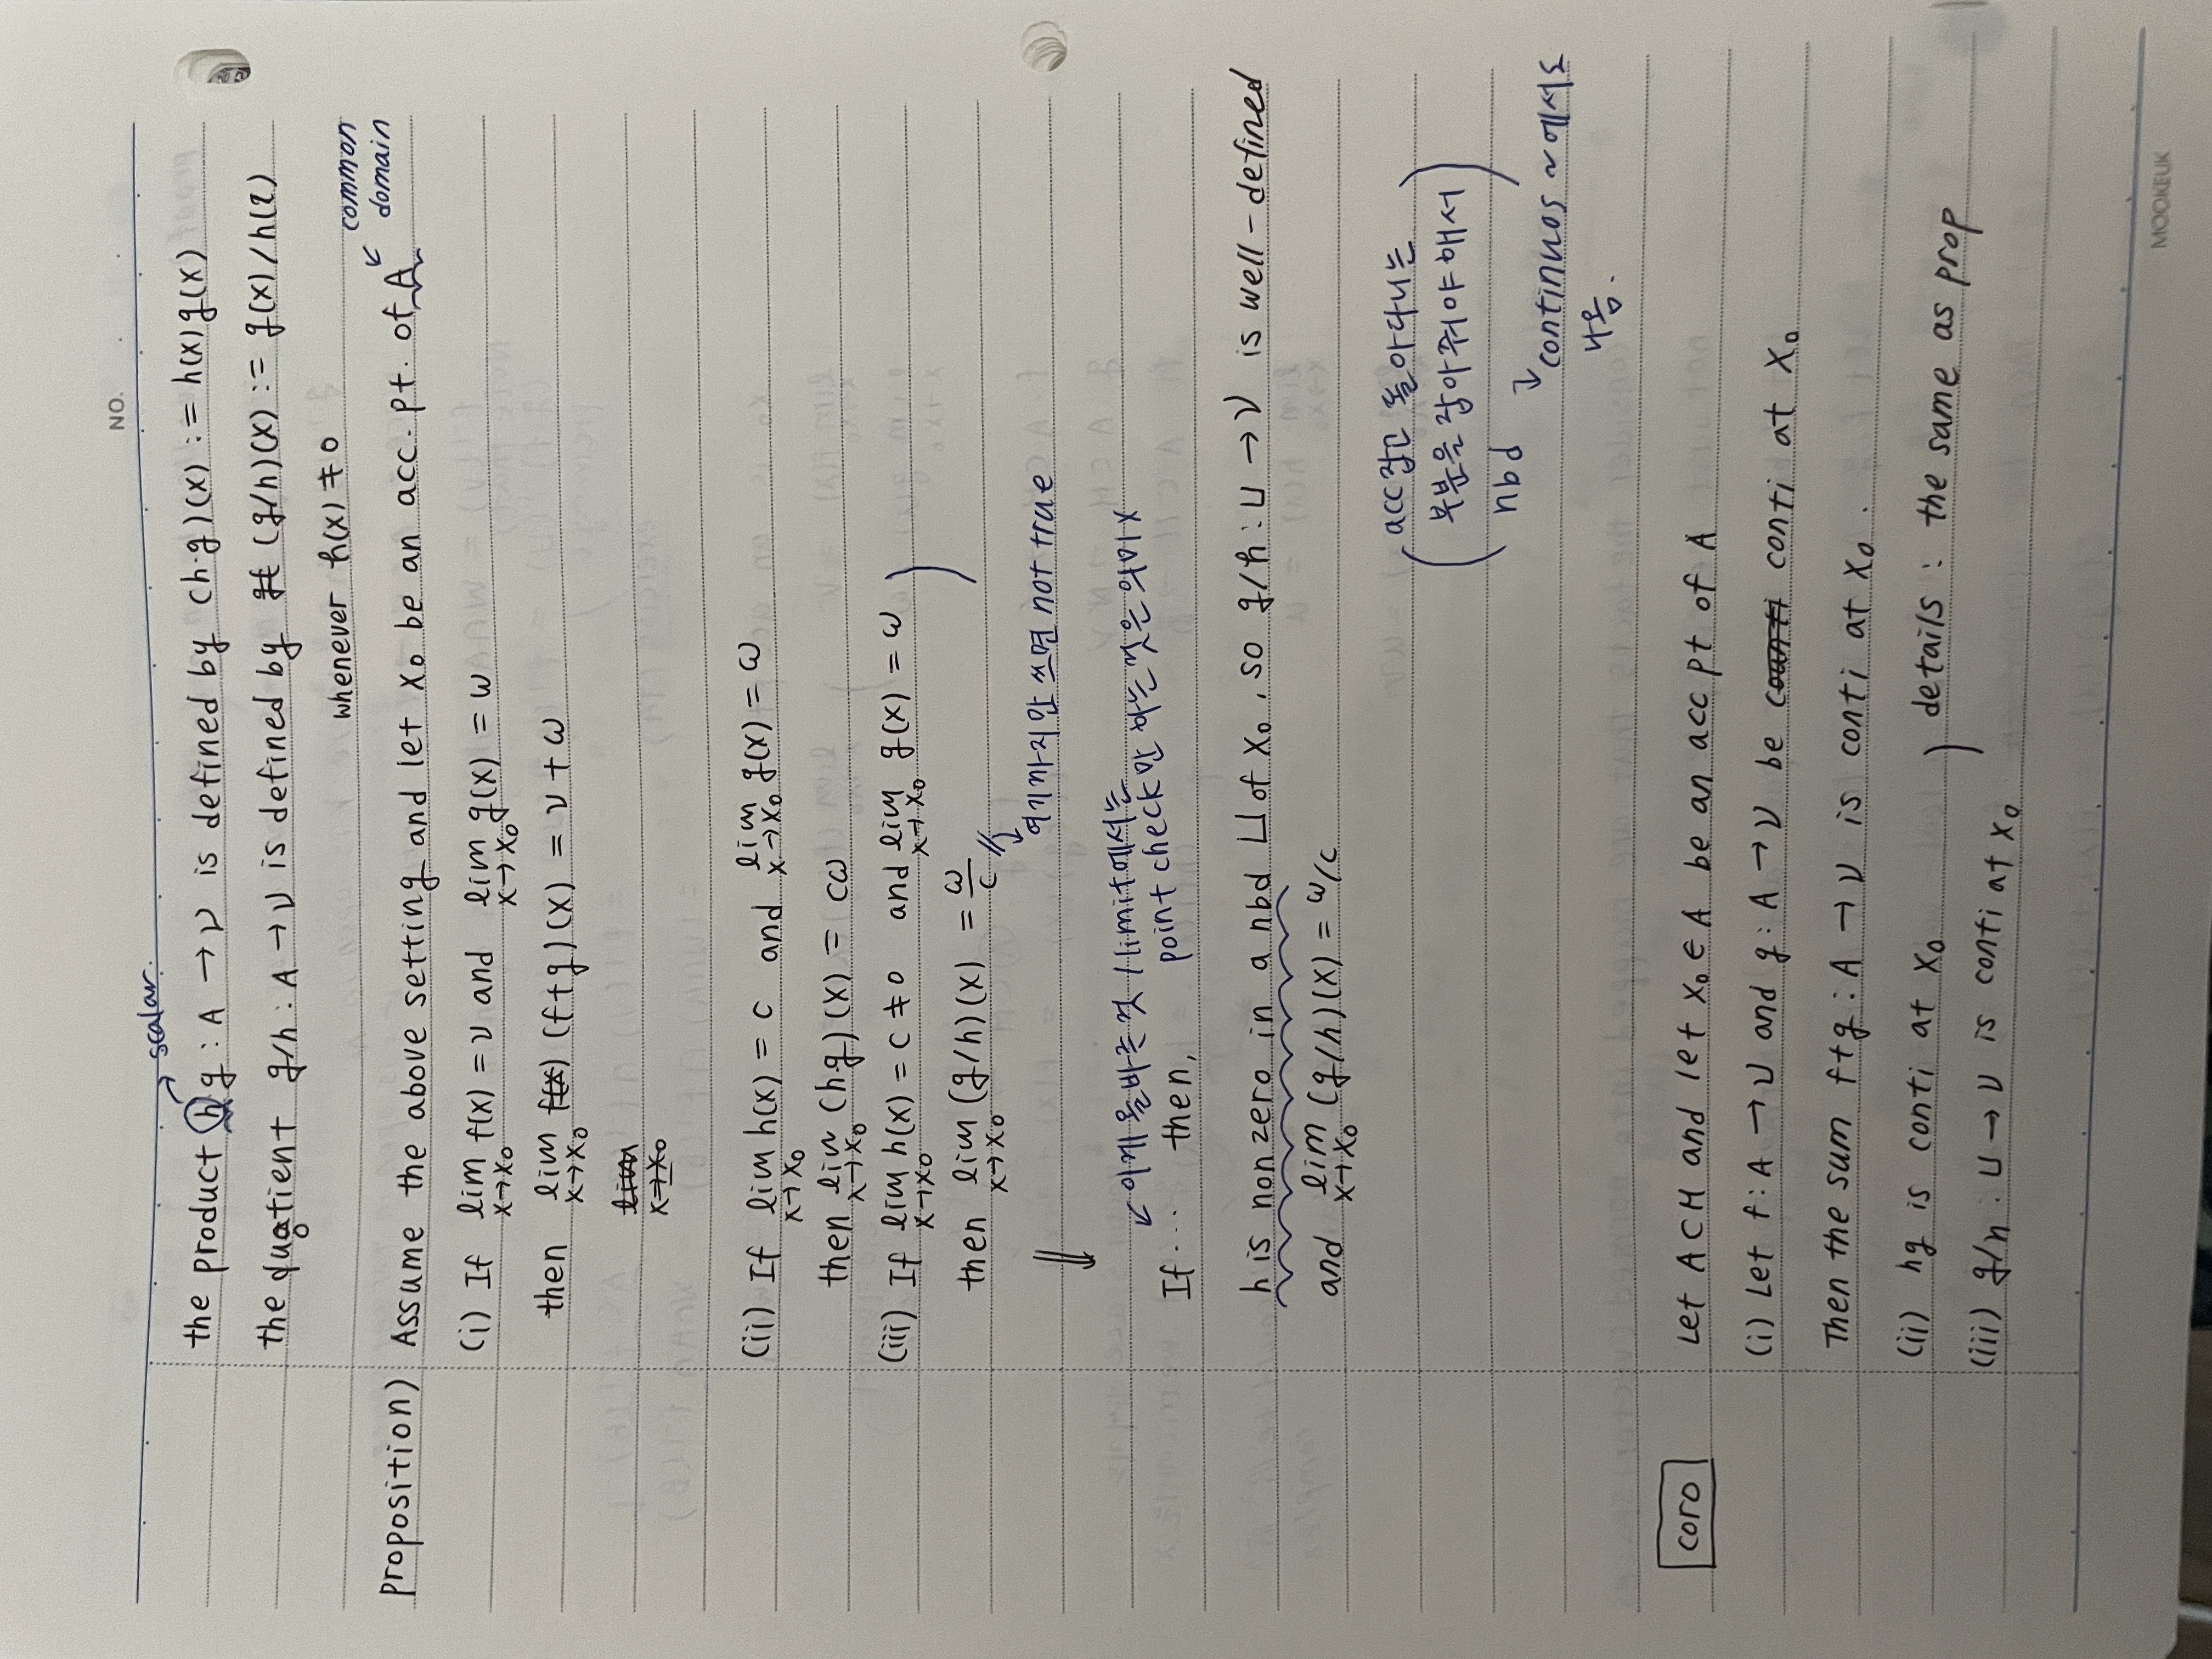 NO.
scalar.
the product hg : A → V is defined by (h·g)(x) := h(x)g(x)
the quotient g/h : A → V is defined by (g/h)(x) := g(x)/h(x)
whenever h(x) ≠ 0
common
domain
proposition) Assume the above setting and let x₀ be an acc. pt. of A
(i) If lim x→x₀ f(x) = v and lim x→x₀ g(x) = ω
then lim x→x₀ f(x) (f+g)(x) = v + ω
lim x→x₀
(ii) If lim x→x₀ h(x) = c and lim x→x₀ g(x) = ω
then lim x→x₀ (h·g)(x) = cω
(iii) If lim x→x₀ h(x) = c ≠ 0 and lim x→x₀ g(x) = ω
then lim x→x₀ (g/h)(x) = ω/c
여기까지만 쓰면 not true
⇓
↙ 이게 올바른것 / limit에서는
point check만 하는것은 의미 x
If... then,
h is nonzero in a nbd U of x₀, so g/h : U → V is well-defined
and lim x→x₀ (g/h)(x) = ω/c
acc잡고 돌아다니는
부분을 잡아줘야해서
nbd
continuos ~에서도
나옴.
coro Let A⊂M and let x₀∈A be an acc pt of A
(i) Let f: A → V and g: A → V be counti conti at x₀
Then the sum f+g : A → V is conti at x₀.
(ii) hg is conti at x₀
details : the same as prop
(iii) g/h : U → V is conti at x₀
MOOKEUK